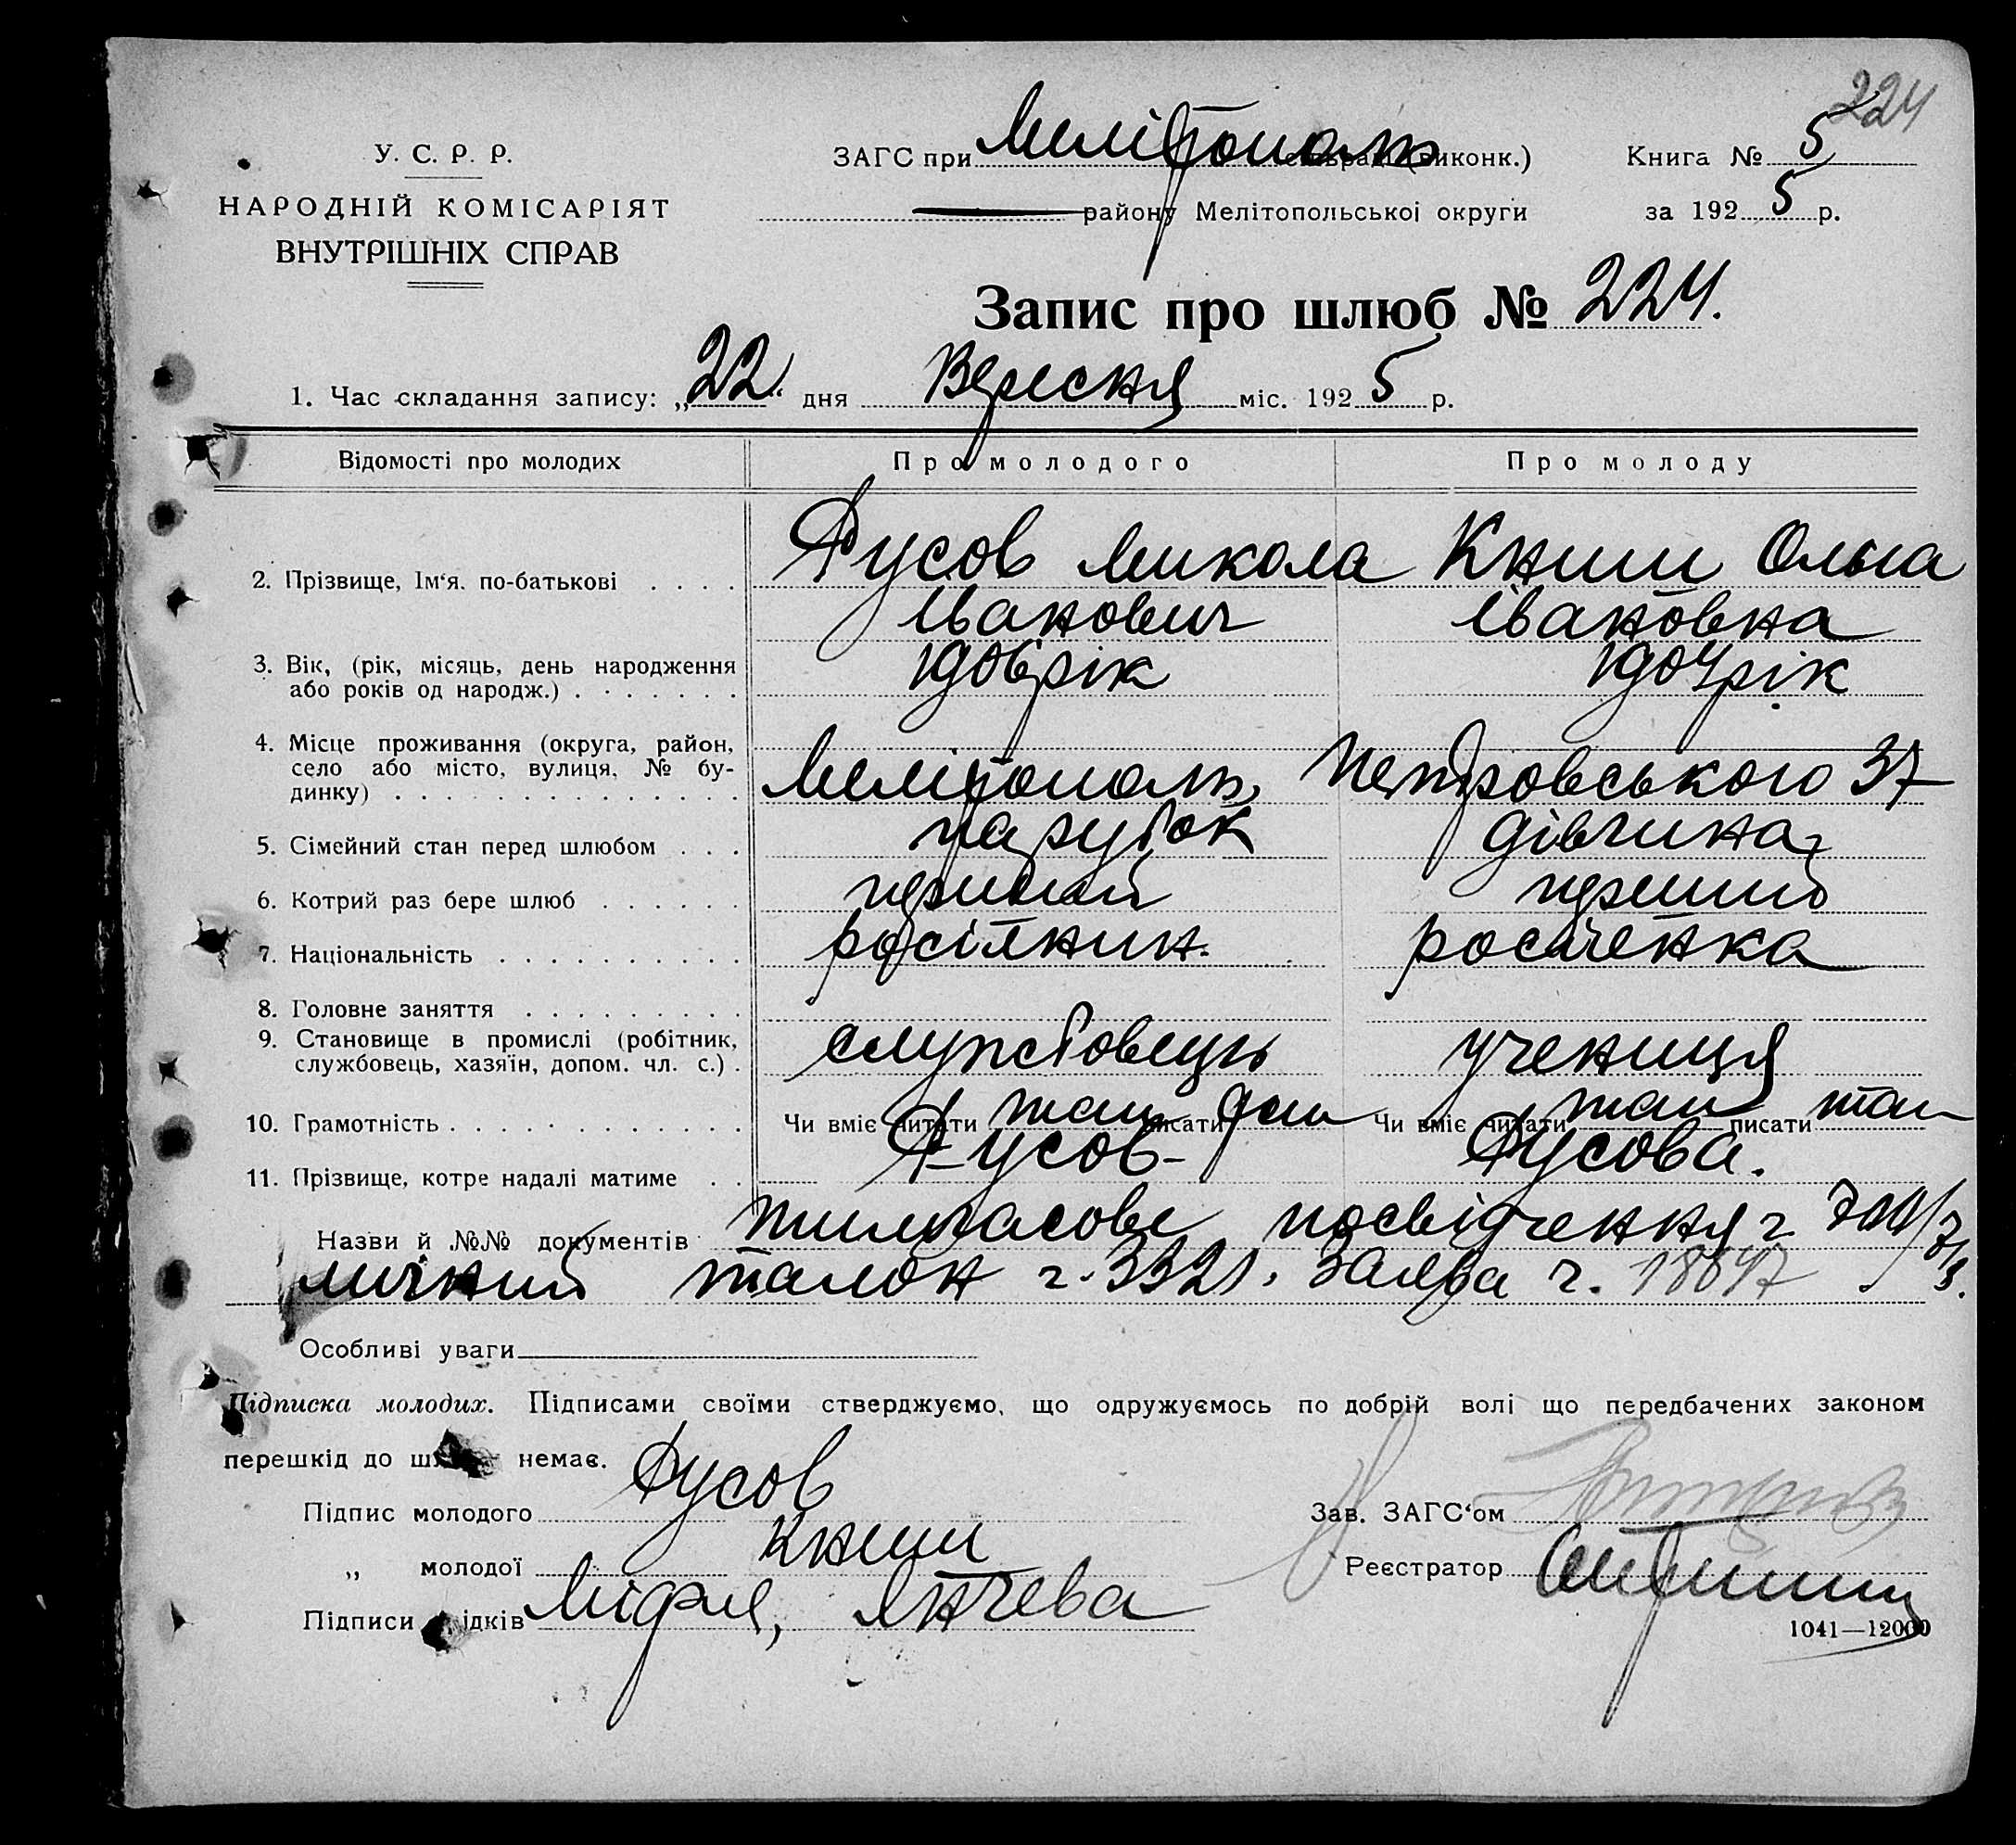 224
У. С. Р. Р.
НАРОДНІЙ КОМІСАРІЯТ
ВНУТРІШНІХ СПРАВ
ЗАГС при Мелітополь (виконк.) Книга № 5
району Мелітопольської округи за 1925 р.
Запис про шлюб № 224.
1. Час складання запису: „22“ дня Вересня міс. 1925 р.
Відомості про молодих Про молодого Про молоду
2. Прізвище, Ім‘я. по-батькові Фусов Микола Книш Ольга
Іванович Івановна
3. Вік, (рік, місяць, день народження
або років од народж.) 1906 рік 1904 рік
4. Місце проживання (округа, район,
село або місто, вулиця, № бу-
динку) Мелітополь, Петровського 37
5. Сімейний стан перед шлюбом парубок дівчина
6. Котрий раз бере шлюб перший перший
7. Національність росіянин. росіченка
8. Головне заняття
9. Становище в промислі (робітник,
службовець, хазяїн, допом. чл. с.) службовець учениця
10. Грамотність Чи вміє читати так писати Чи вміє читати так писати так
11. Прізвище, котре надалі матиме Фусов Фусова.
Назви й №№ документів тимчасове посвідчення ч.
мічний талон ч. 3321, Заява ч. 18847
Особливі уваги
Підписка молодих. Підписами своїми стверджуємо, що одружуємось по добрій волі що передбачених законом
перешкід до немає.
Підпис молодого Фусов Зав. ЗАГС‘ом
„ молодої Книш Реєстратор
Підписи ідків
1041—12000